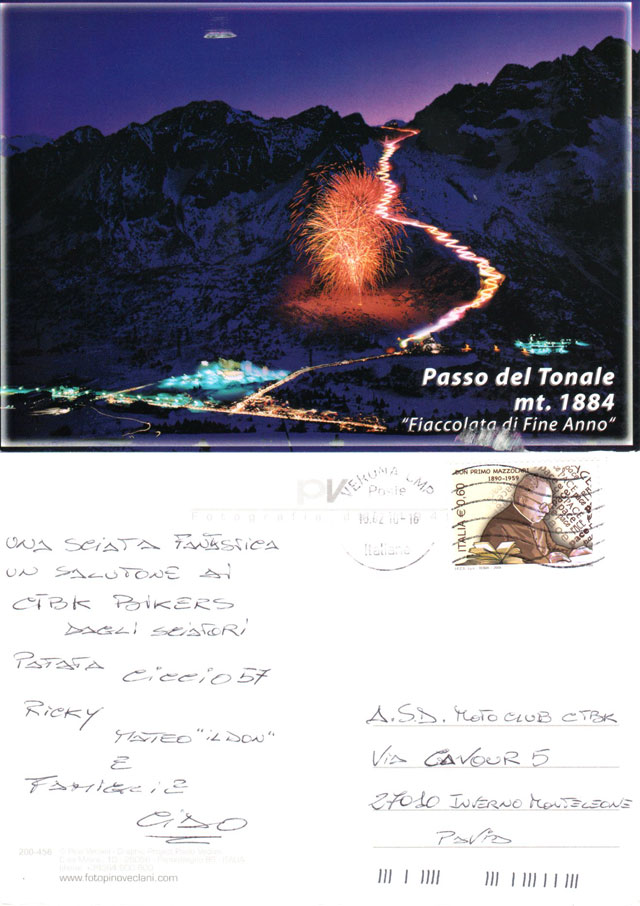 Passo del Tonale
mt. 1884
"Fiaccolata di Fine Anno"
pv
Fotografia
VERONA CMP
Poste
10.02.10-16
Italiane
DON PRIMO MAZZOLARI
1890-1959
ITALIA € 0,60
UNA SCIATA FANTASTICA
UN SALUTONE AI
CTBK BIKERS
DAGLI SCIATORI
PATATA CICCIO57
RICKY
MATEO "IL DON"
E
FAMIGLIE
CIAO
A.S.D. MOTOCLUB CTBK
VIA CAVOUR 5
27010 INVERNO MONTELEONE
PAVIA
200-456
www.fotopinoveclani.com